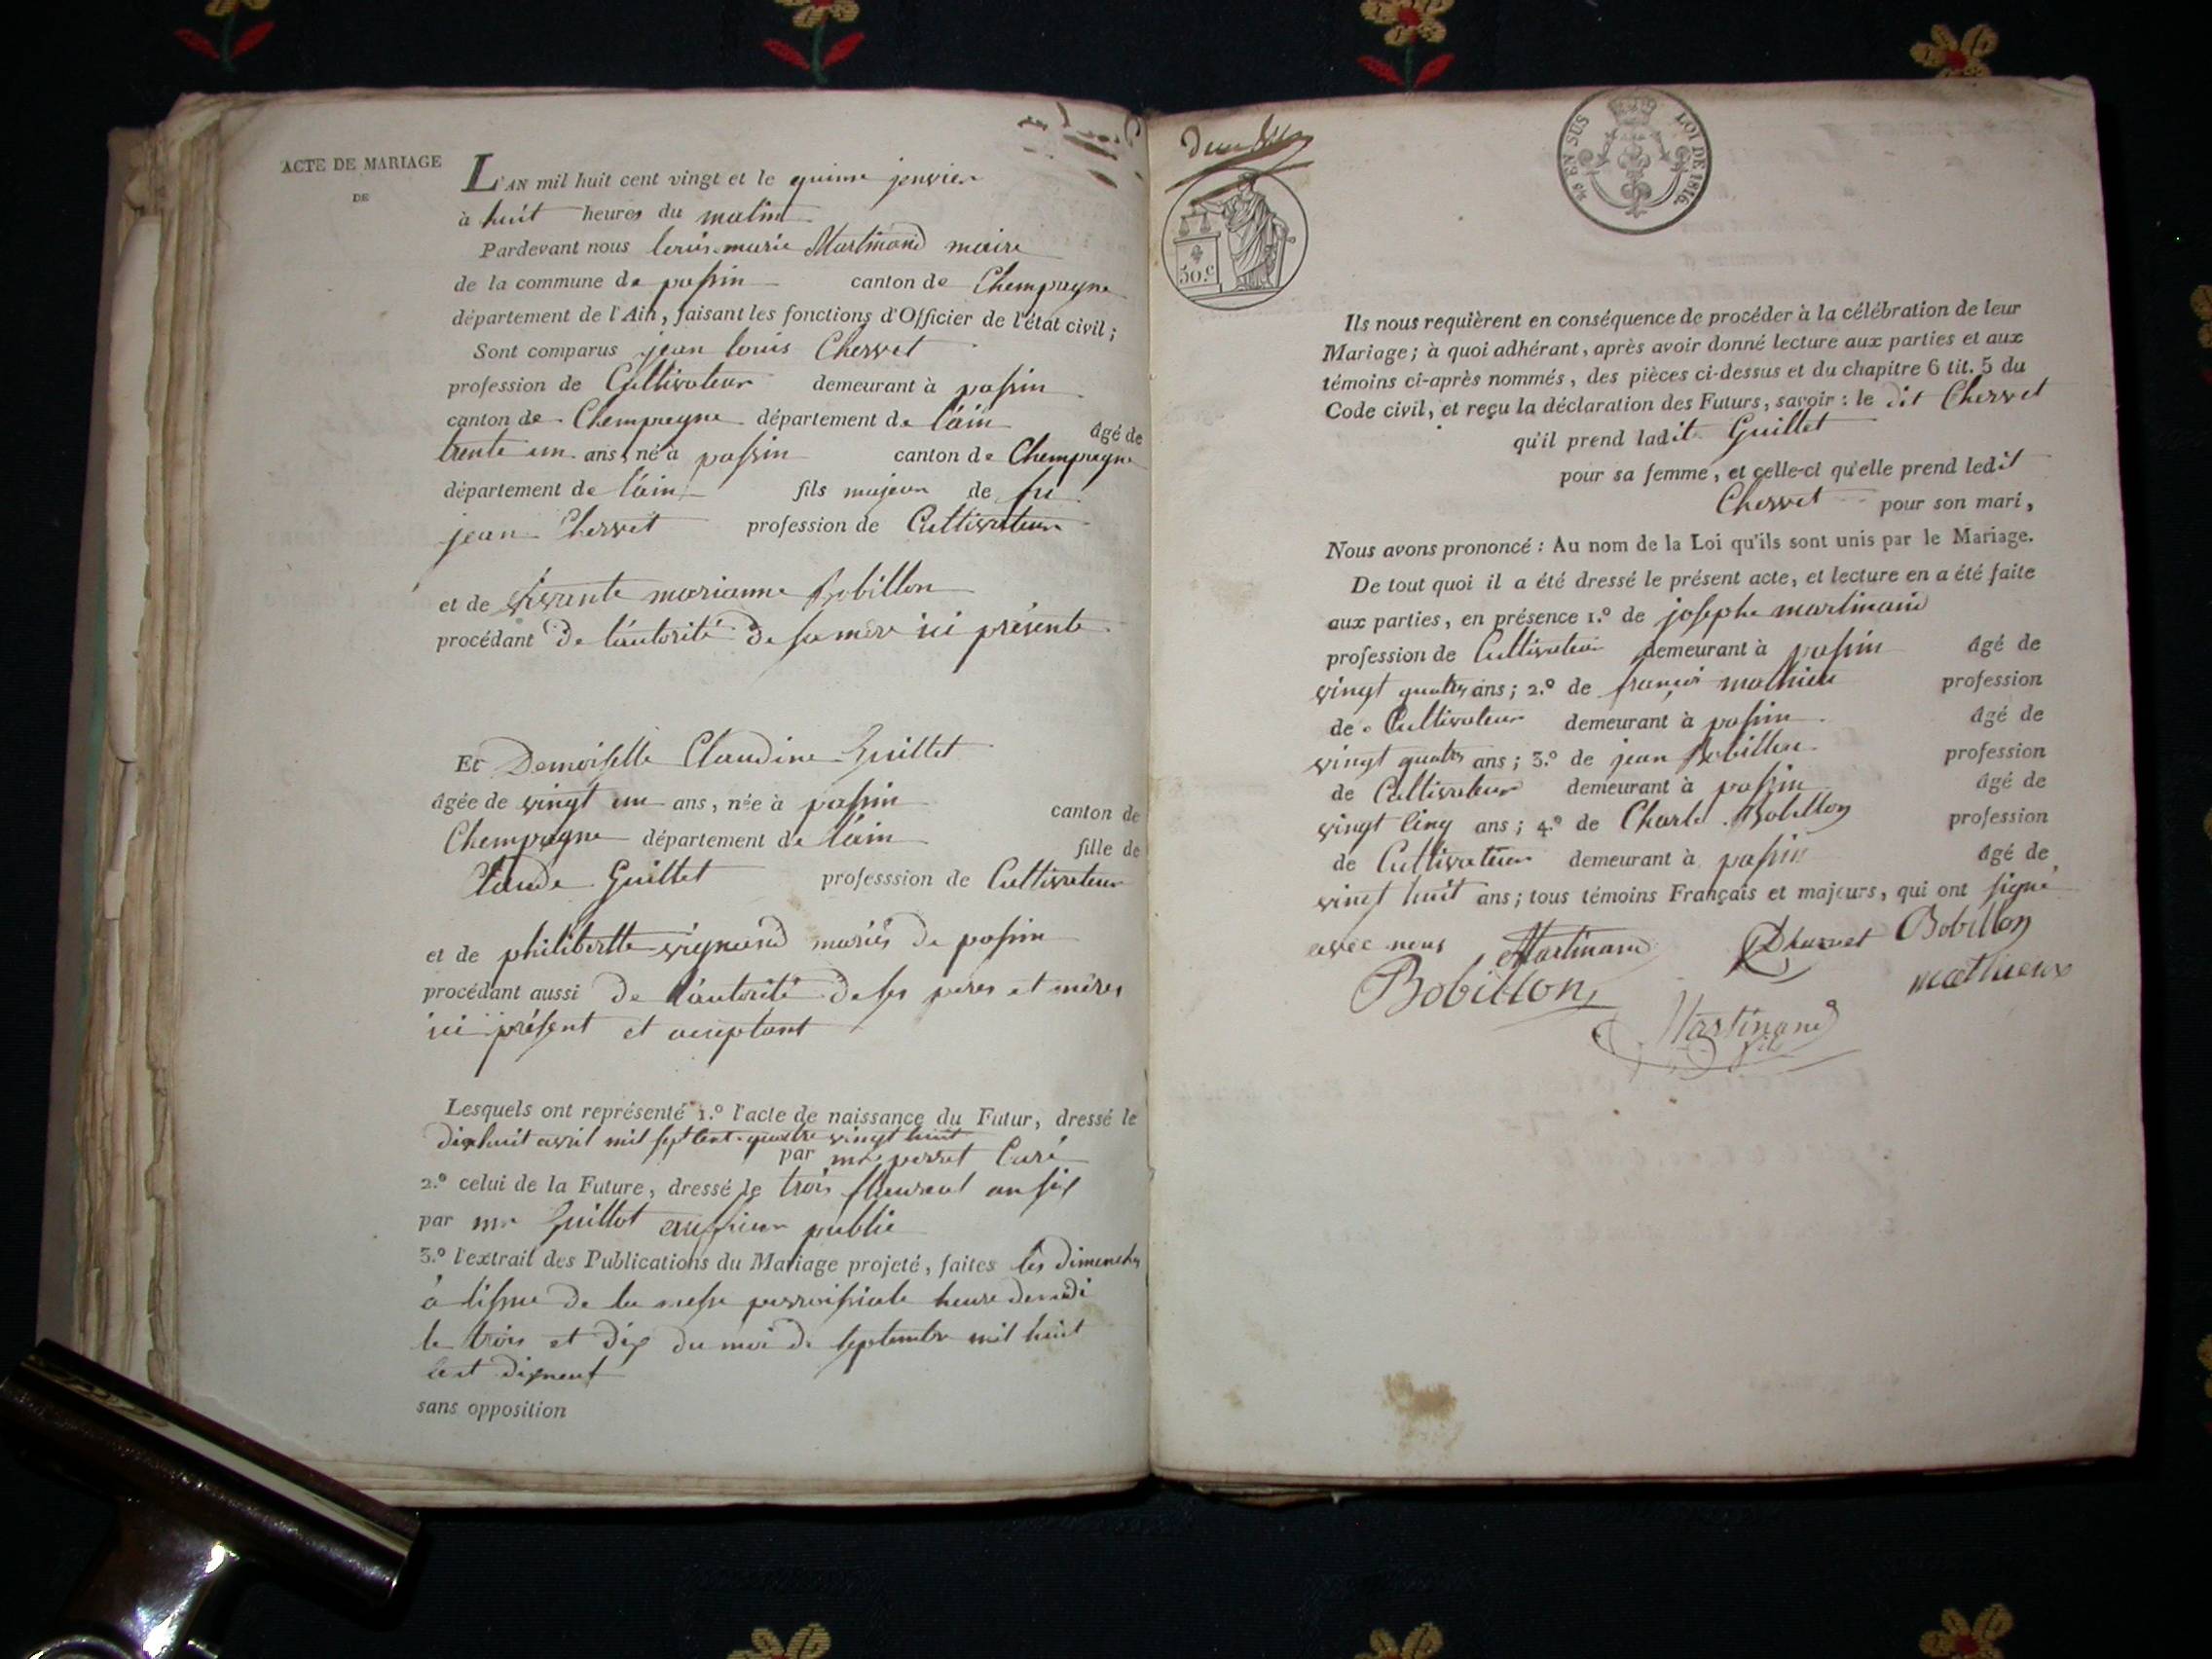 ACTE DE MARIAGE
DE
L'AN mil huit cent vingt et le quinze janvier
à huit heures du matin
Pardevant nous louis marie Martinand maire
de la commune de passin canton de Champagne
département de l'Ain, faisant les fonctions d'Officier de l'état civil;
Sont comparus jean louis Chervet
profession de Cultivateur demeurant à passin
canton de Champagne département de l'ain âgé de
trente un ans, né à passin canton de Champagne
département de l'ain fils majeur de feu
jean Chervet profession de Cultivateur
et de vivante marianne Bobillon
procédant de l'autorité de sa mere ici présente
Et Demoiselle Claudine Guillet
âgée de vingt un ans, née à passin canton de
Champagne département de l'ain fille de
Claude Guillet professsion de Cultivateur
et de philibertte vignand mariés de passin
procédant aussi de l'autorité de ses peres et mères
ici présent et aceptant
Lesquels ont représenté 1.º l'acte de naissance du Futur, dressé le
dixhuit avril mil sept cent quatre vingt huit
par mr perret Curé
2.º celui de la Future, dressé le trois floureal an six
par mr Guillot officier public
3.º l'extrait des Publications du Mariage projeté, faites les dimenches
à lissue de la messe parroissiale heure de midi
le trois et dix du moi de septembre mil huit
cent dixneuf
sans opposition
EN SUS
LOI DE 1816.
50.c
Ils nous requièrent en conséquence de procéder à la célébration de leur
Mariage; à quoi adhérant, après avoir donné lecture aux parties et aux
témoins ci-après nommés, des pièces ci-dessus et du chapitre 6 tit. 5 du
Code civil, et reçu la déclaration des Futurs, savoir: le dit Chervet
qu'il prend ladit Guillet
pour sa femme, et celle-ci qu'elle prend ledit
Chervet pour son mari,
Nous avons prononcé: Au nom de la Loi qu'ils sont unis par le Mariage.
De tout quoi il a été dressé le présent acte, et lecture en a été faite
aux parties, en présence 1.º de josephe martinand
profession de Cultivateur demeurant à passin âgé de
vingt quatre ans; 2.º de françois mathieu profession
de Cultivateur demeurant à passin âgé de
vingt quatre ans; 3.º de jean Bobillon profession
de Cultivateur demeurant à passin âgé de
vingt cinq ans; 4.º de Charle Bobillon profession
de Cultivateur demeurant à passin âgé de
vingt huit ans; tous témoins Français et majeurs, qui ont signé
avec nous Martinand Charvet Bobillon
Bobillon mathieux
Martinand